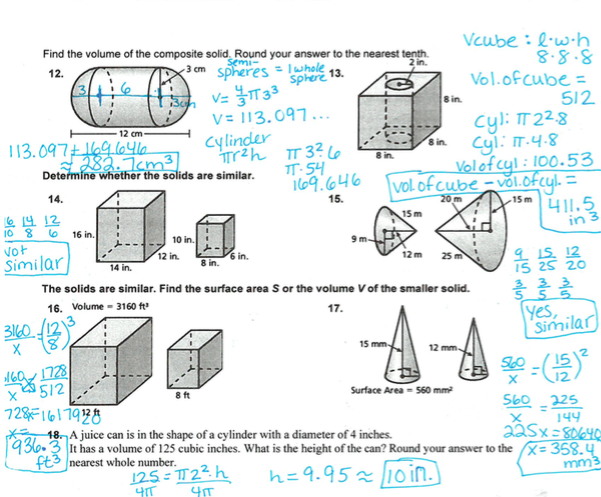 Find the volume of the composite solid. Round your answer to the nearest tenth.
12.
3 cm
3
6
3cm
12 cm
semi-
spheres = 1 whole
sphere
V = 4/3 π3³
V = 113.097...
cylinder
πr²h
π3²6
π·54
169.646
113.097 + 169.646
≈ 282.7cm³
13.
2 in.
8 in.
8 in.
8 in.
Vcube : l·w·h
8·8·8
Vol. of cube =
512
cyl: π2²·8
cyl: π·4·8
Vol of cyl : 100.53
Vol. of cube - vol. of cyl. =
411.5
in³
Determine whether the solids are similar.
14.
16 in.
14 in.
12 in.
10 in.
8 in.
6 in.
16 14 12
10 8 6
Not
similar
15.
15 m
9 m
12 m
20 m
15 m
25 m
9/15 15/25 12/20
3/5 3/5 3/5
Yes,
similar
The solids are similar. Find the surface area S or the volume V of the smaller solid.
16. Volume = 3160 ft³
12 ft
8 ft
3160/x = (12/8)³
1728
512
728x=1617920
x=
936.3
ft³
17.
15 mm
12 mm
Surface Area = 560 mm²
560/x = (15/12)²
560/x = 225/144
225x = 80640
x = 358.4
mm²
18. A juice can is in the shape of a cylinder with a diameter of 4 inches.
It has a volume of 125 cubic inches. What is the height of the can? Round your answer to the
nearest whole number.
125 = π2²·h
4π 4π
h = 9.95 ≈ 10in.